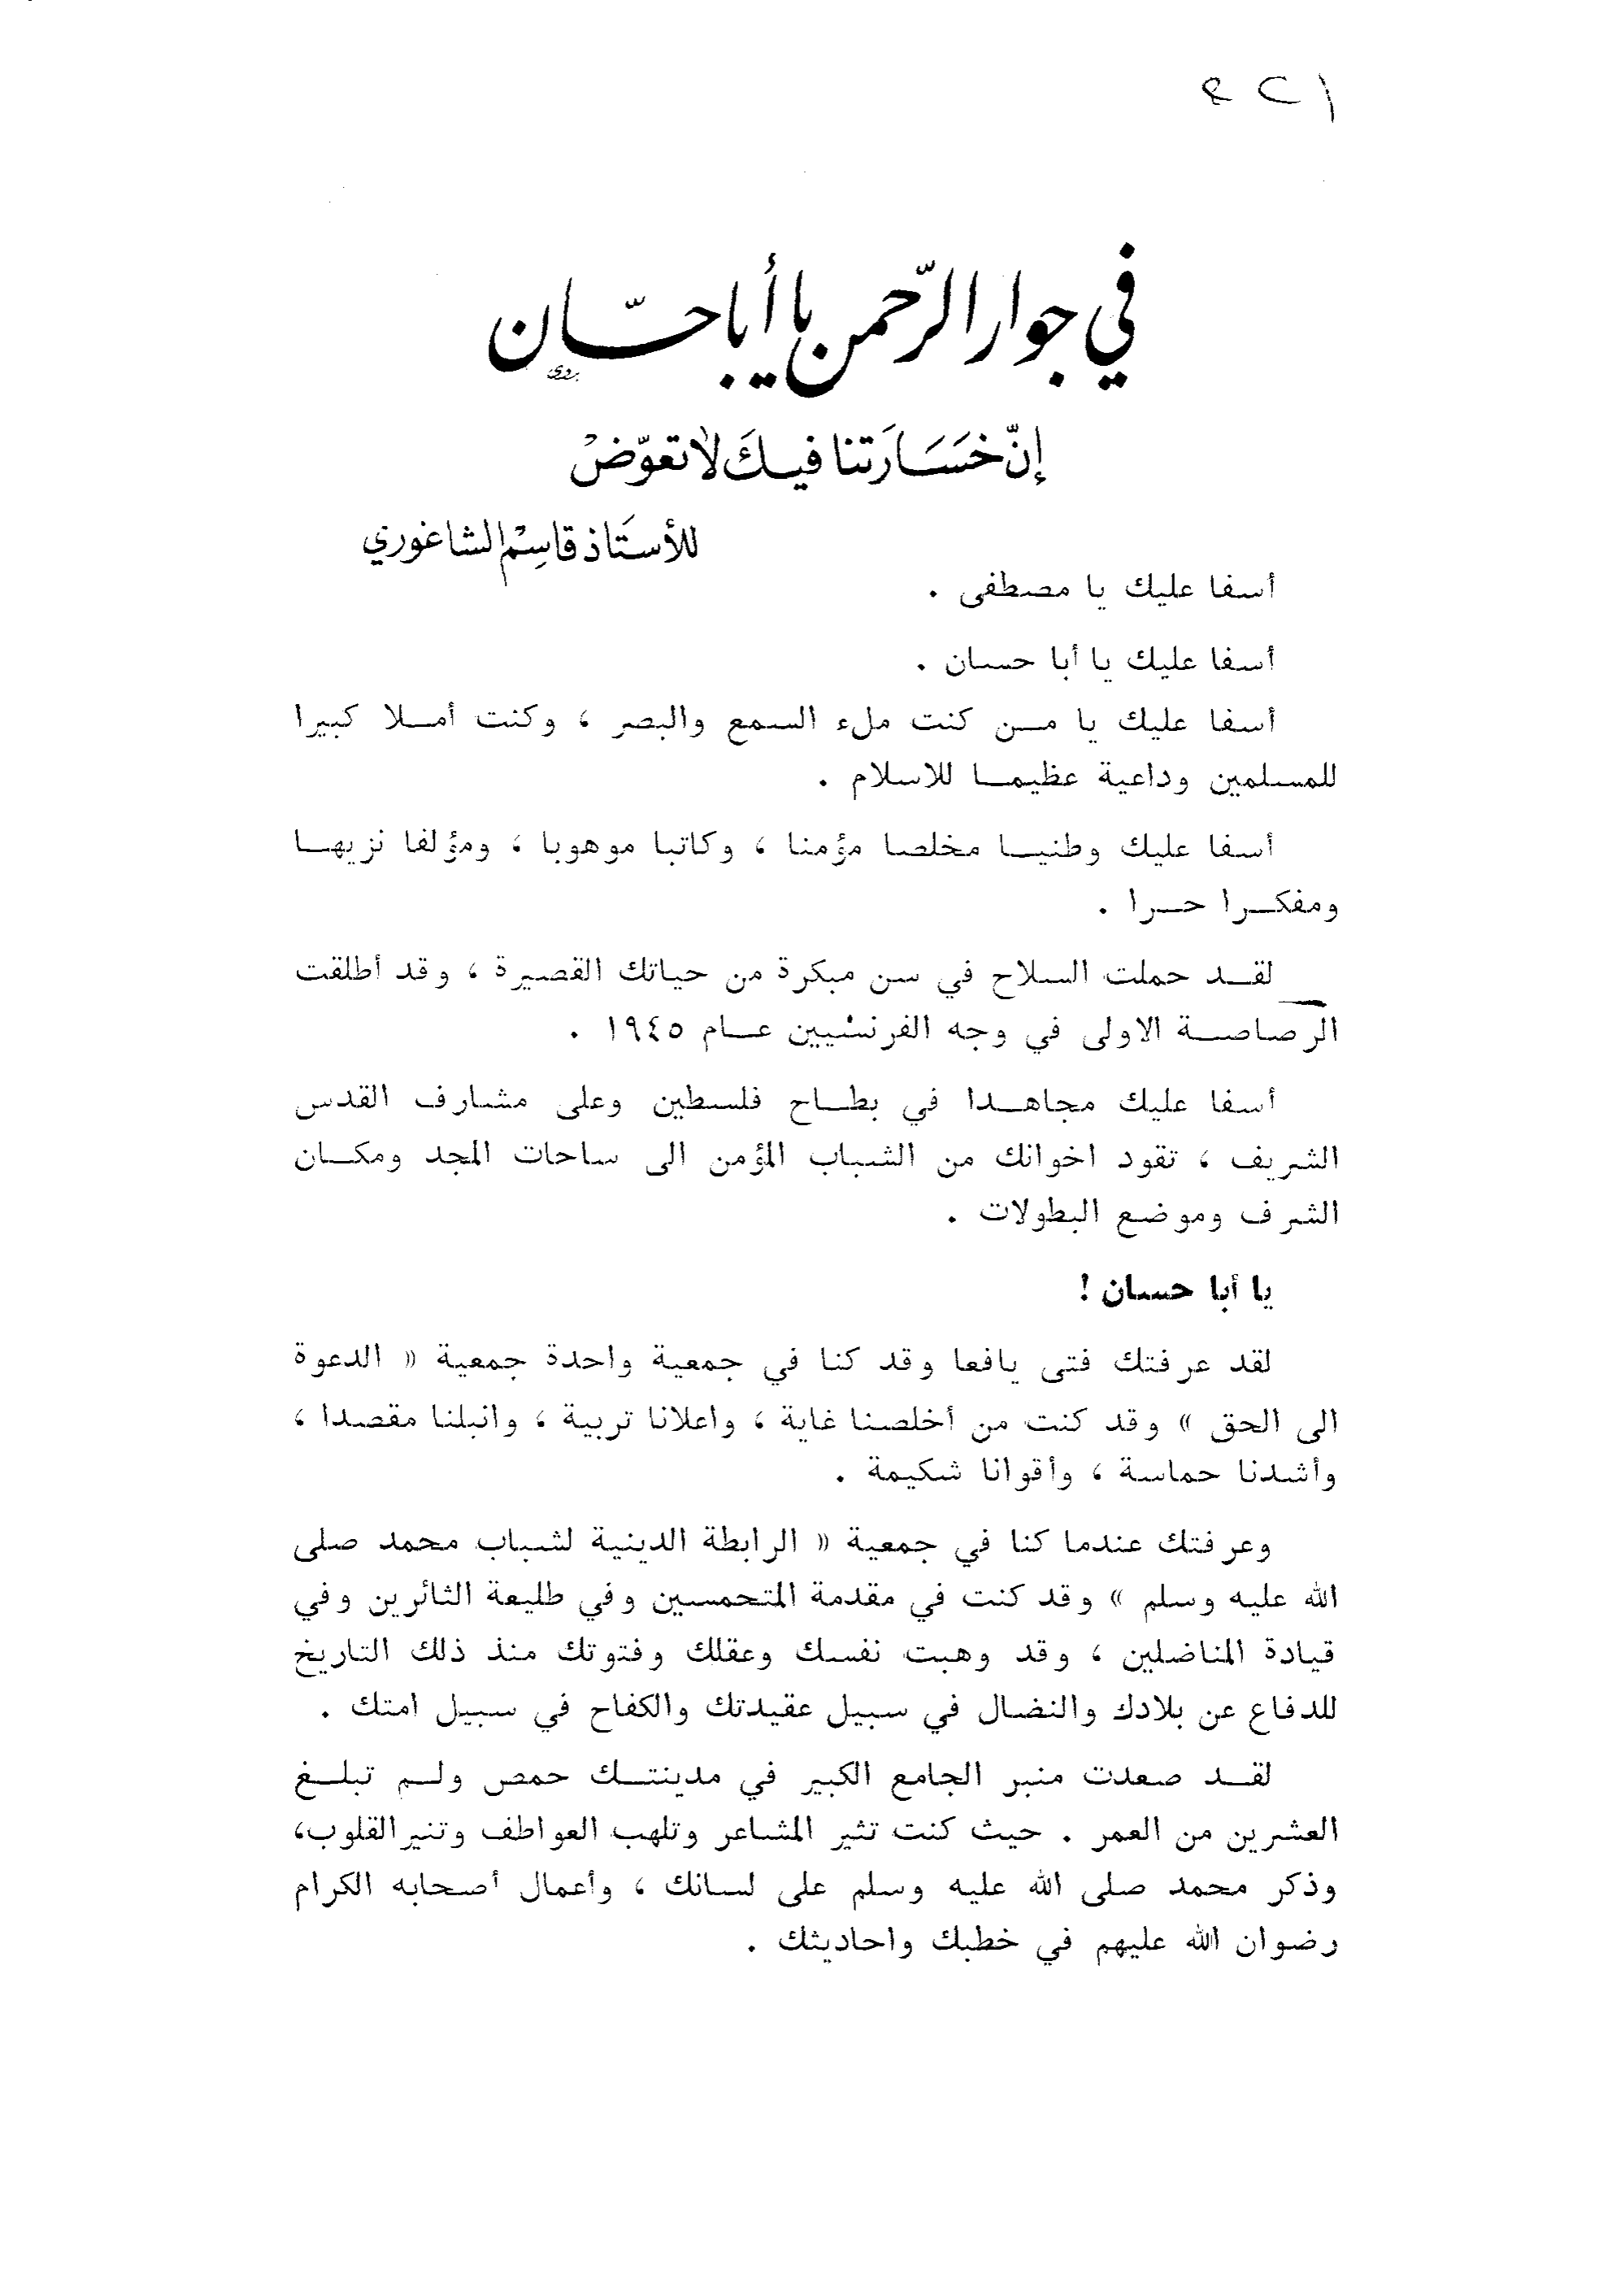 في جوار الرّحمن يا أبا حسّان
إنّ خَسَارَتنا فيكَ لا تعوّضْ
للأستَاذ قاسِمْ الشاغوري
أسفا عليك يا مصطفى .
أسفا عليك يا أبا حسان .
أسفا عليك يا من كنت ملء السمع والبصر ، وكنت أملا كبيرا
للمسلمين وداعية عظيما للاسلام .
أسفا عليك وطنيا مخلصا مؤمنا ، وكاتبا موهوبا ، ومؤلفا نزيها
ومفكرا حرا .
لقد حملت السلاح في سن مبكرة من حياتك القصيرة ، وقد أطلقت
الرصاصة الاولى في وجه الفرنسيين عام ١٩٤٥ .
أسفا عليك مجاهدا في بطاح فلسطين وعلى مشارف القدس
الشريف ، تقود اخوانك من الشباب المؤمن الى ساحات المجد ومكان
الشرف وموضع البطولات .
يا أبا حسان !
لقد عرفتك فتى يافعا وقد كنا في جمعية واحدة جمعية « الدعوة
الى الحق » وقد كنت من أخلصنا غاية ، واعلانا تربية ، وانبلنا مقصدا ،
وأشدنا حماسة ، وأقوانا شكيمة .
وعرفتك عندما كنا في جمعية « الرابطة الدينية لشباب محمد صلى
الله عليه وسلم » وقد كنت في مقدمة المتحمسين وفي طليعة الثائرين وفي
قيادة المناضلين ، وقد وهبت نفسك وعقلك وفتوتك منذ ذلك التاريخ
للدفاع عن بلادك والنضال في سبيل عقيدتك والكفاح في سبيل امتك .
لقد صعدت منبر الجامع الكبير في مدينتك حمص ولم تبلغ
العشرين من العمر . حيث كنت تثير المشاعر وتلهب العواطف وتنير القلوب،
وذكر محمد صلى الله عليه وسلم على لسانك ، وأعمال أصحابه الكرام
رضوان الله عليهم في خطبك واحاديثك .